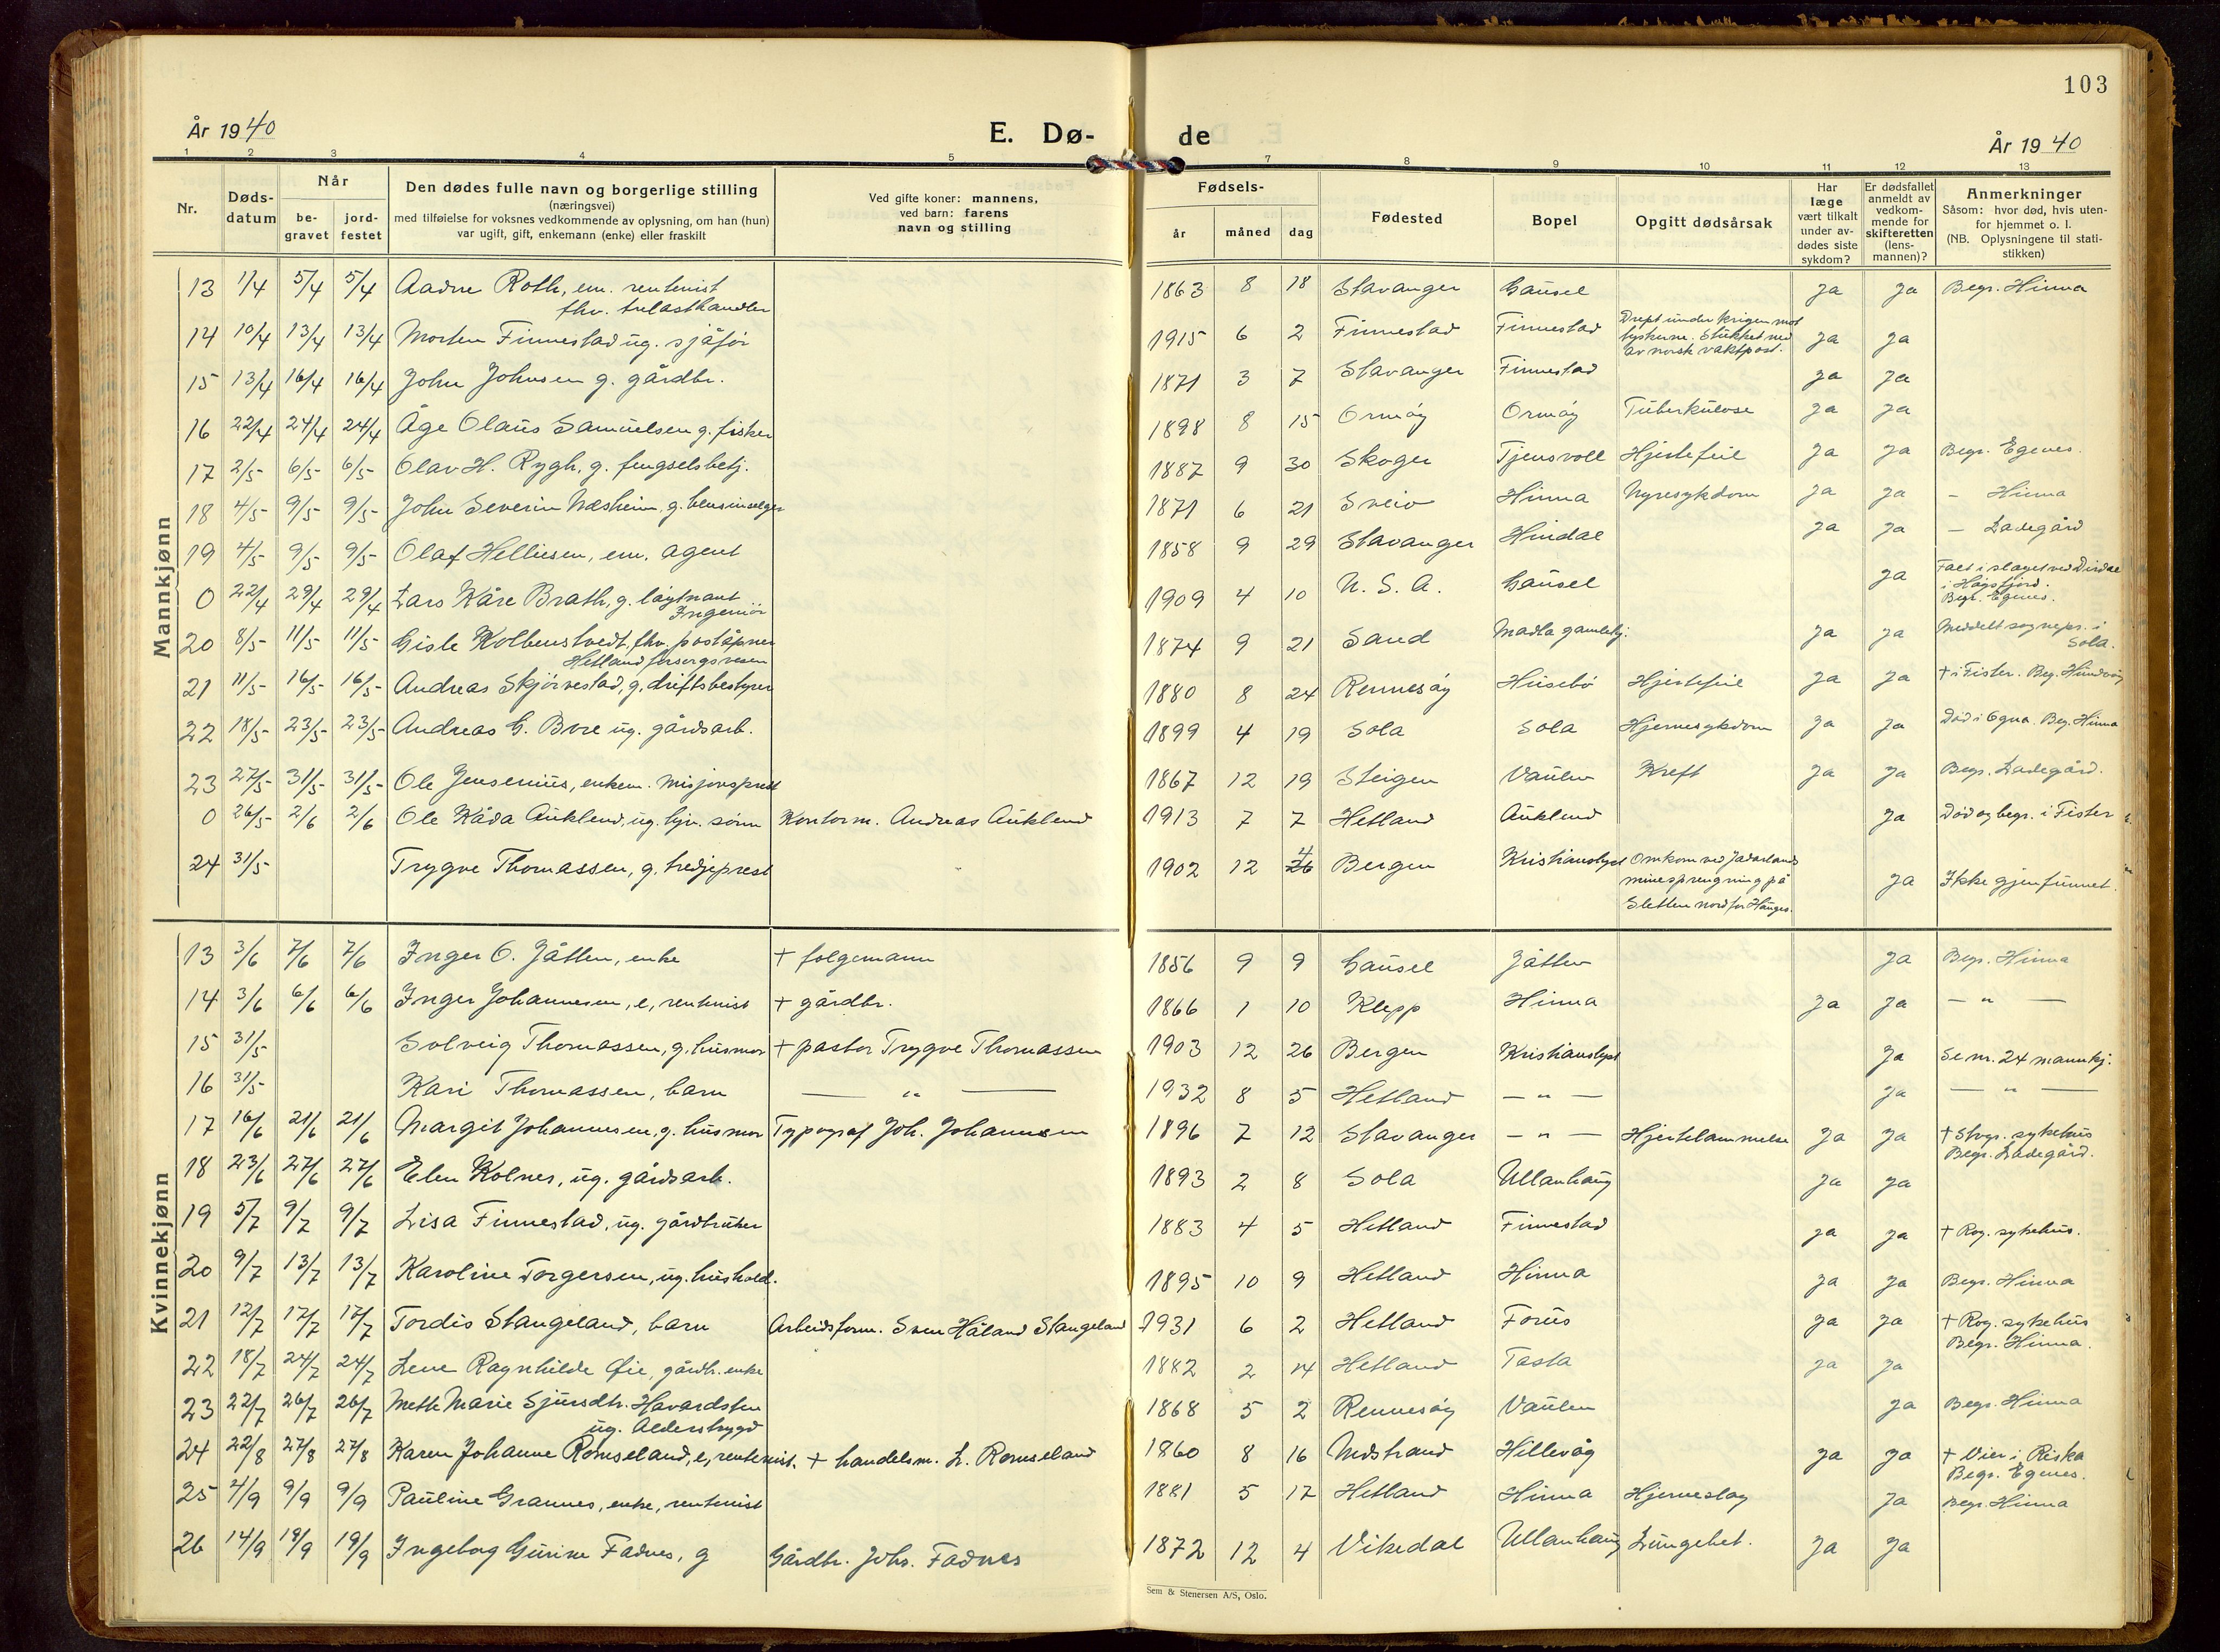 103
År 1940
E. Dø-
de
År 1940
1 2 3 4 5 7 8 9 10 11 12 13
Nr.
Døds-
datum
Når
be-
gravet
jord-
festet
Den dødes fulle navn og borgerlige stilling
(næringsvei)
med tilføielse for voksnes vedkommende av oplysning, om han (hun)
var ugift, gift, enkemann (enke) eller fraskilt
Ved gifte koner: mannens,
ved barn: farens
navn og stilling
Fødsels-
år måned dag
Fødested
Bopel
Opgitt dødsårsak
Har
læge
vært tilkalt
under av-
dødes siste
sykdom?
Er dødsfallet
anmeldt av
vedkom-
mende for
skifteretten
(lens-
mannen)?
Anmerkninger
Såsom: hvor død, hvis uten-
for hjemmet o. l.
(NB. Oplysningene til stati-
stikken)
Mannkjønn
13 1/4 5/4 5/4 Aadne Roth, em. rentenist 1863 8 18 Stavanger Gausel ja ja Begr. Hinna
fhv. trelasthandler
14 10/4 13/4 13/4 Morten Finnestad ug. sjåfør 1915 6 2 Finnestad Finnestad Drept under krigen mot ja ja
tyskerne. Stukket ned
av norsk vaktpost.
15 13/4 16/4 16/4 John Johnsen g. gårdbr. 1871 3 7 Stavanger Finnestad ja ja
16 22/4 24/4 24/4 Åge Olaus Samuelsen g. fisker 1898 8 15 Ormøy Ormøy Tuberkulose ja ja
17 2/5 6/5 6/5 Olav H. Rygh, g. fengselsbetj. 1887 9 30 Skoger Tjensvoll Hjertefeil ja ja Begr. Egenes.
18 4/5 9/5 9/5 John Severin Næsheim, g. bensinselger 1871 6 21 Sveio Hinna Nyresykdom ja ja – Hinna
19 4/5 9/5 9/5 Olaf Helliesen, em. agent 1858 9 29 Stavanger Hindal ja ja – Ladegård
0 22/4 29/4 29/4 Lars Kåre Brath, g. løytnant 1909 4 10 U. S. A. Gausel ja Falt i slaget ved Dirdal
Ingeniør i Høgsfjord.
Begr. Egenes.
20 8/5 11/5 11/5 Gisle Kolbenstvedt, fhv. poståpner 1874 9 21 Sand Madla gamlehj. ja ja Meddelt sognepr. i
Hetland forsorgsvesen Sola.
21 11/5 16/5 16/5 Andreas Skjørvestad, g. driftsbestyrer 1880 8 24 Rennesøy Husebø Hjertefeil ja ja † i Fister. Beg. Hundvåg
22 18/5 23/5 23/5 Andreas G. Bore ug. gårdsarb. 1899 4 19 Sola Sola Hjernesykdom ja ja Død i Ogna. Beg. Hinna
23 27/5 31/5 31/5 Ole Jensenius, enkem. misjonsprest 1867 12 19 Steigen Vaulen Kreft ja ja Begr. Ladegård.
0 26/5 2/6 2/6 Ole Kåda Auklend, ug. hjv. sønn Kontorm. Andreas Auklend 1913 7 7 Hetland Auklend ja Død og begr. i Fister
24 31/5 Trygve Thomassen, g. tredjeprest 1902 12 4 Bergen Kristianslyst Omkom ved Jadarlands ja Ikke gjenfunnet.
minesprengning på
Sletten nord for Hauges.
Kvinnekjønn
13 3/6 7/6 7/6 Inger O. Jåtten, enke + følgemann 1856 9 9 Gausel Jåtten ja Begr. Hinna
14 3/6 6/6 6/6 Inger Johannesen, e, rentenist + gårdbr. 1866 1 10 Klepp Hinna ja ja – " –
15 31/5 Solveig Thomassen, g. husmor + pastor Trygve Thomassen 1903 12 26 Bergen Kristianslyst ja Se nr. 24 mannkj.
16 31/5 Kari Thomassen, barn – " – 1932 8 5 Hetland – " – ja – " –
17 16/6 21/6 21/6 Margit Johannesen, g. husmor Typograf Joh. Johannesen 1896 7 12 Stavanger – " – Hjertelammelse ja ja † Stvgr. sykehus
Begr. Ladegård.
18 23/6 27/6 27/6 Elen Kolnes, ug. gårdsarb. 1893 2 8 Sola Ullanhaug ja ja
19 5/7 9/7 9/7 Lisa Finnestad, ug. gårdbruker 1883 4 5 Hetland Finnestad ja ja † Rog. sykehus.
20 9/7 13/7 13/7 Karoline Torgersen, ug. hushold. 1895 10 9 Hetland Hinna ja ja Begr. Hinna
21 12/7 17/7 17/7 Tordis Stangeland, barn Arbeidsform. Sven Håland Stangeland 1931 6 2 Hetland Forus ja ja † Rog. sykehus
Begr. Hinna.
22 18/7 24/7 24/7 Lene Ragnhilde Øie, gårdb. enke 1882 2 14 Hetland Tasta ja ja
23 22/7 26/7 26/7 Mette Marie Sjursdtr. Havardsten 1868 5 2 Rennesøy Vaulen ja Begr. Hinna
ug. Alderstrygd
24 22/8 27/8 27/8 Karen Johanne Romseland, e, rentenist. + handelsm. L. Romseland 1860 8 16 Nedstrand Hillevåg ja ja † Vier i Riska
Begr. Egenes.
25 4/9 9/9 9/9 Pauline Grannes, enke, rentenist 1881 5 17 Hetland Hinna Hjerneslag ja Begr. Hinna
26 14/9 19/9 19/9 Ingeborg Gurine Fadnes, g Gårdbr. Johs. Fadnes 1872 12 4 Vikedal Ullanhaug Lungebet. ja ja
Sem & Stenersen A/S, Oslo.